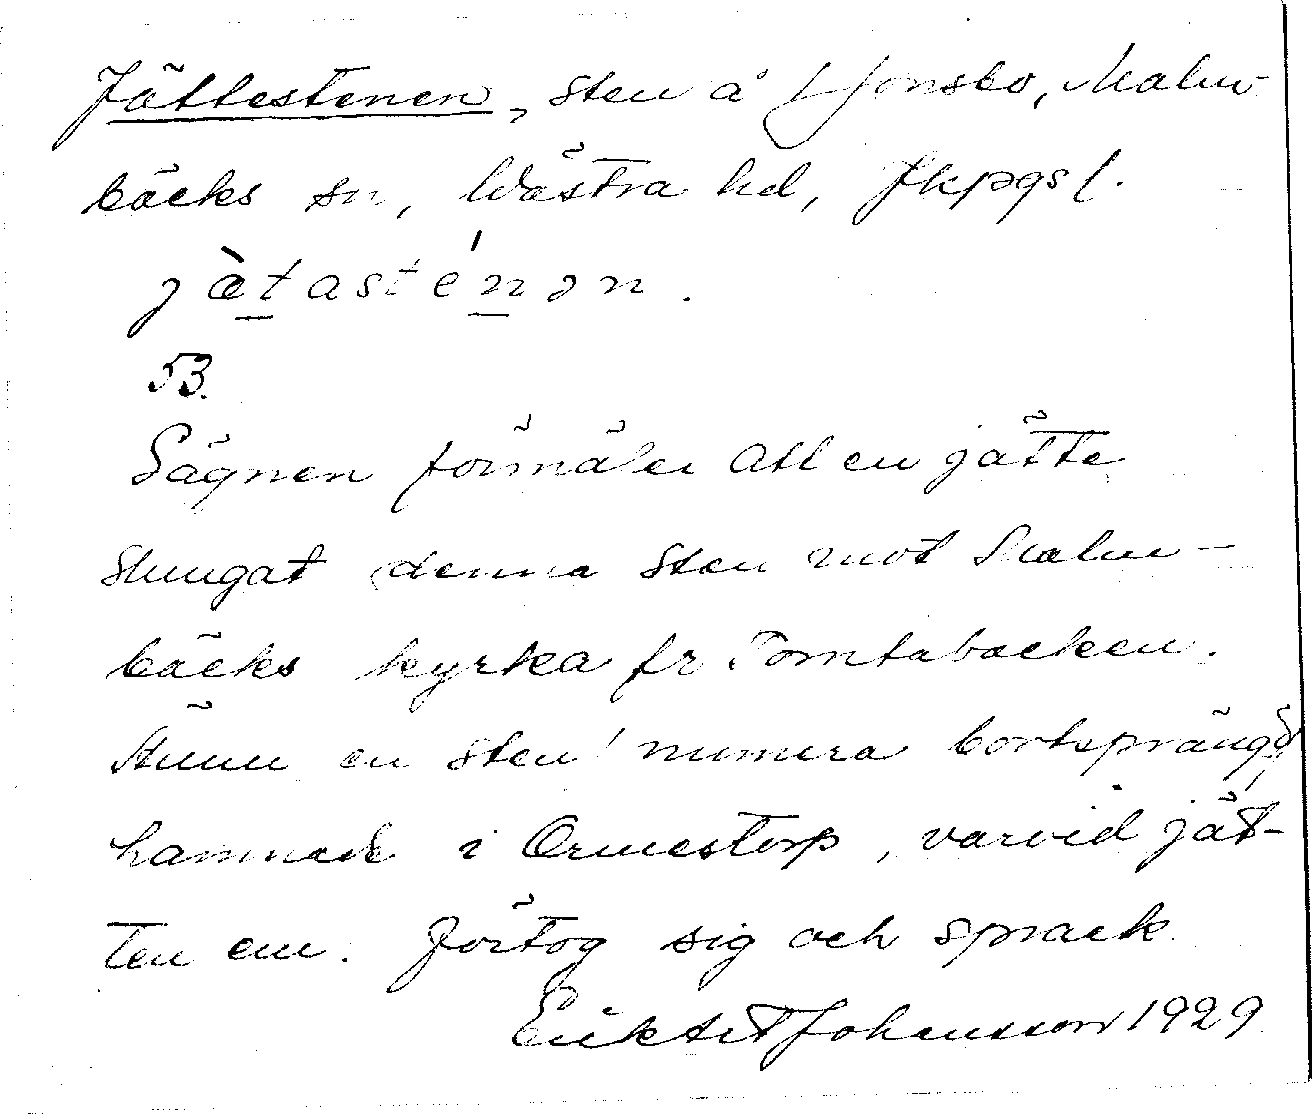 Jättestenen, sten å Ljonsbo, Malm-
bäcks sn, Västra hd, Jkpgs l.
jàtasténən.
53.
Sägnen förmäler att en jätte
slungat denna sten mot Malm-
bäcks kyrka fr Tomtabacken.
Ännu en sten, numera bortsprängd,
hamnade i Ormestorp, varvid jät-
ten em. förtog sig och sprack.
Johansson 1929